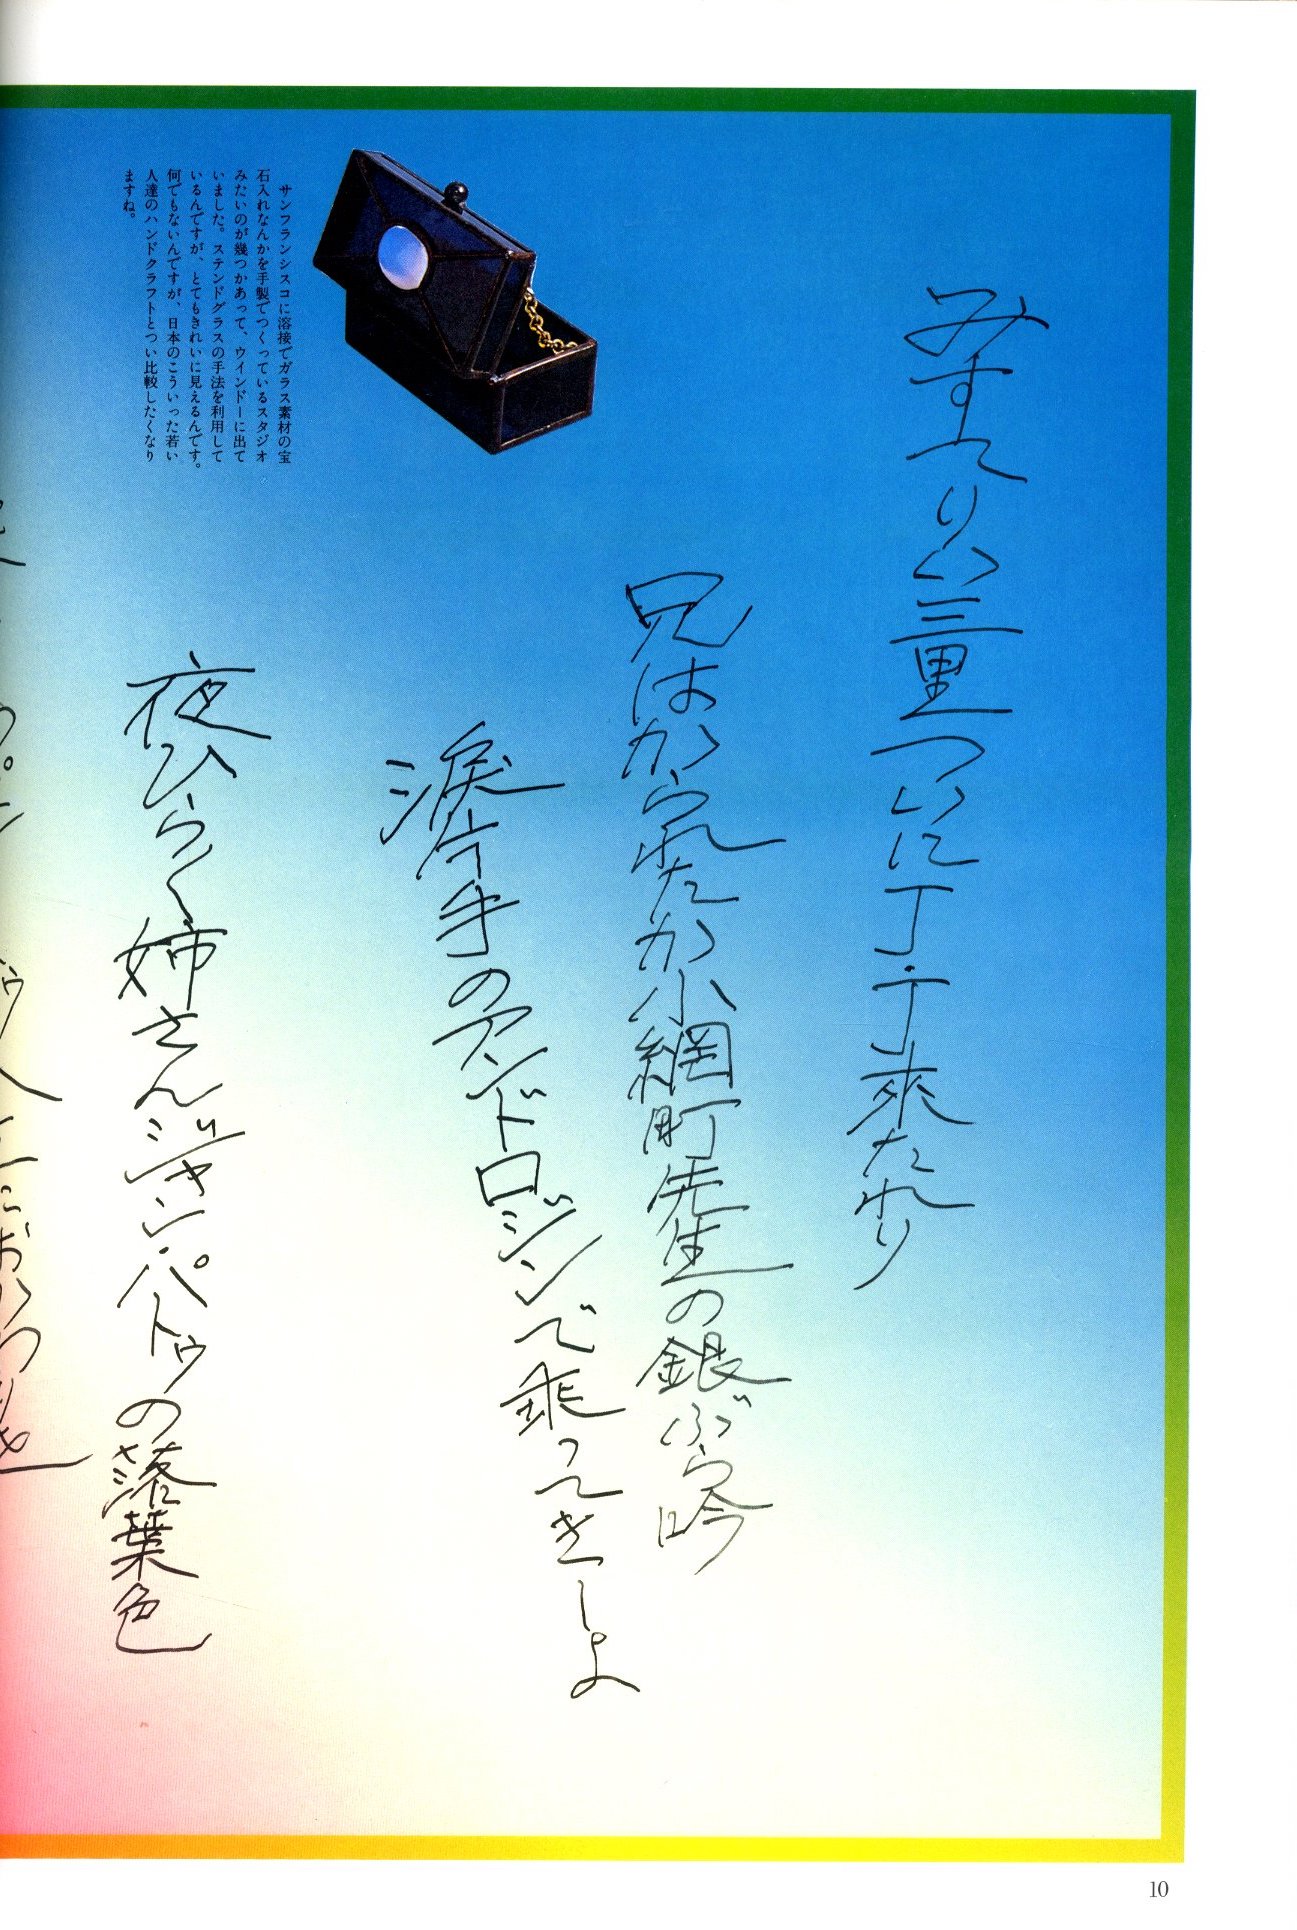 みすてりい三里ついに丁・丁来たれり
兄はからうれたか小網町先生の銀ぶら吟
涙片手のアンドロジンで乗ってきしよ
夜ひらく姉さんジャン・パトゥの落葉色
サンフランシスコに溶接でガラス素材の宝
石入れなんかを手製でつくっているスタジオ
みたいのが幾つかあって、ウインドーに出て
いました。ステンドグラスの手法を利用して
いるんですが、とてもきれいに見えるんです。
何でもないんですが、日本のこういった若い
人達のハンドクラフトとつい比較したくなり
ますね。
10